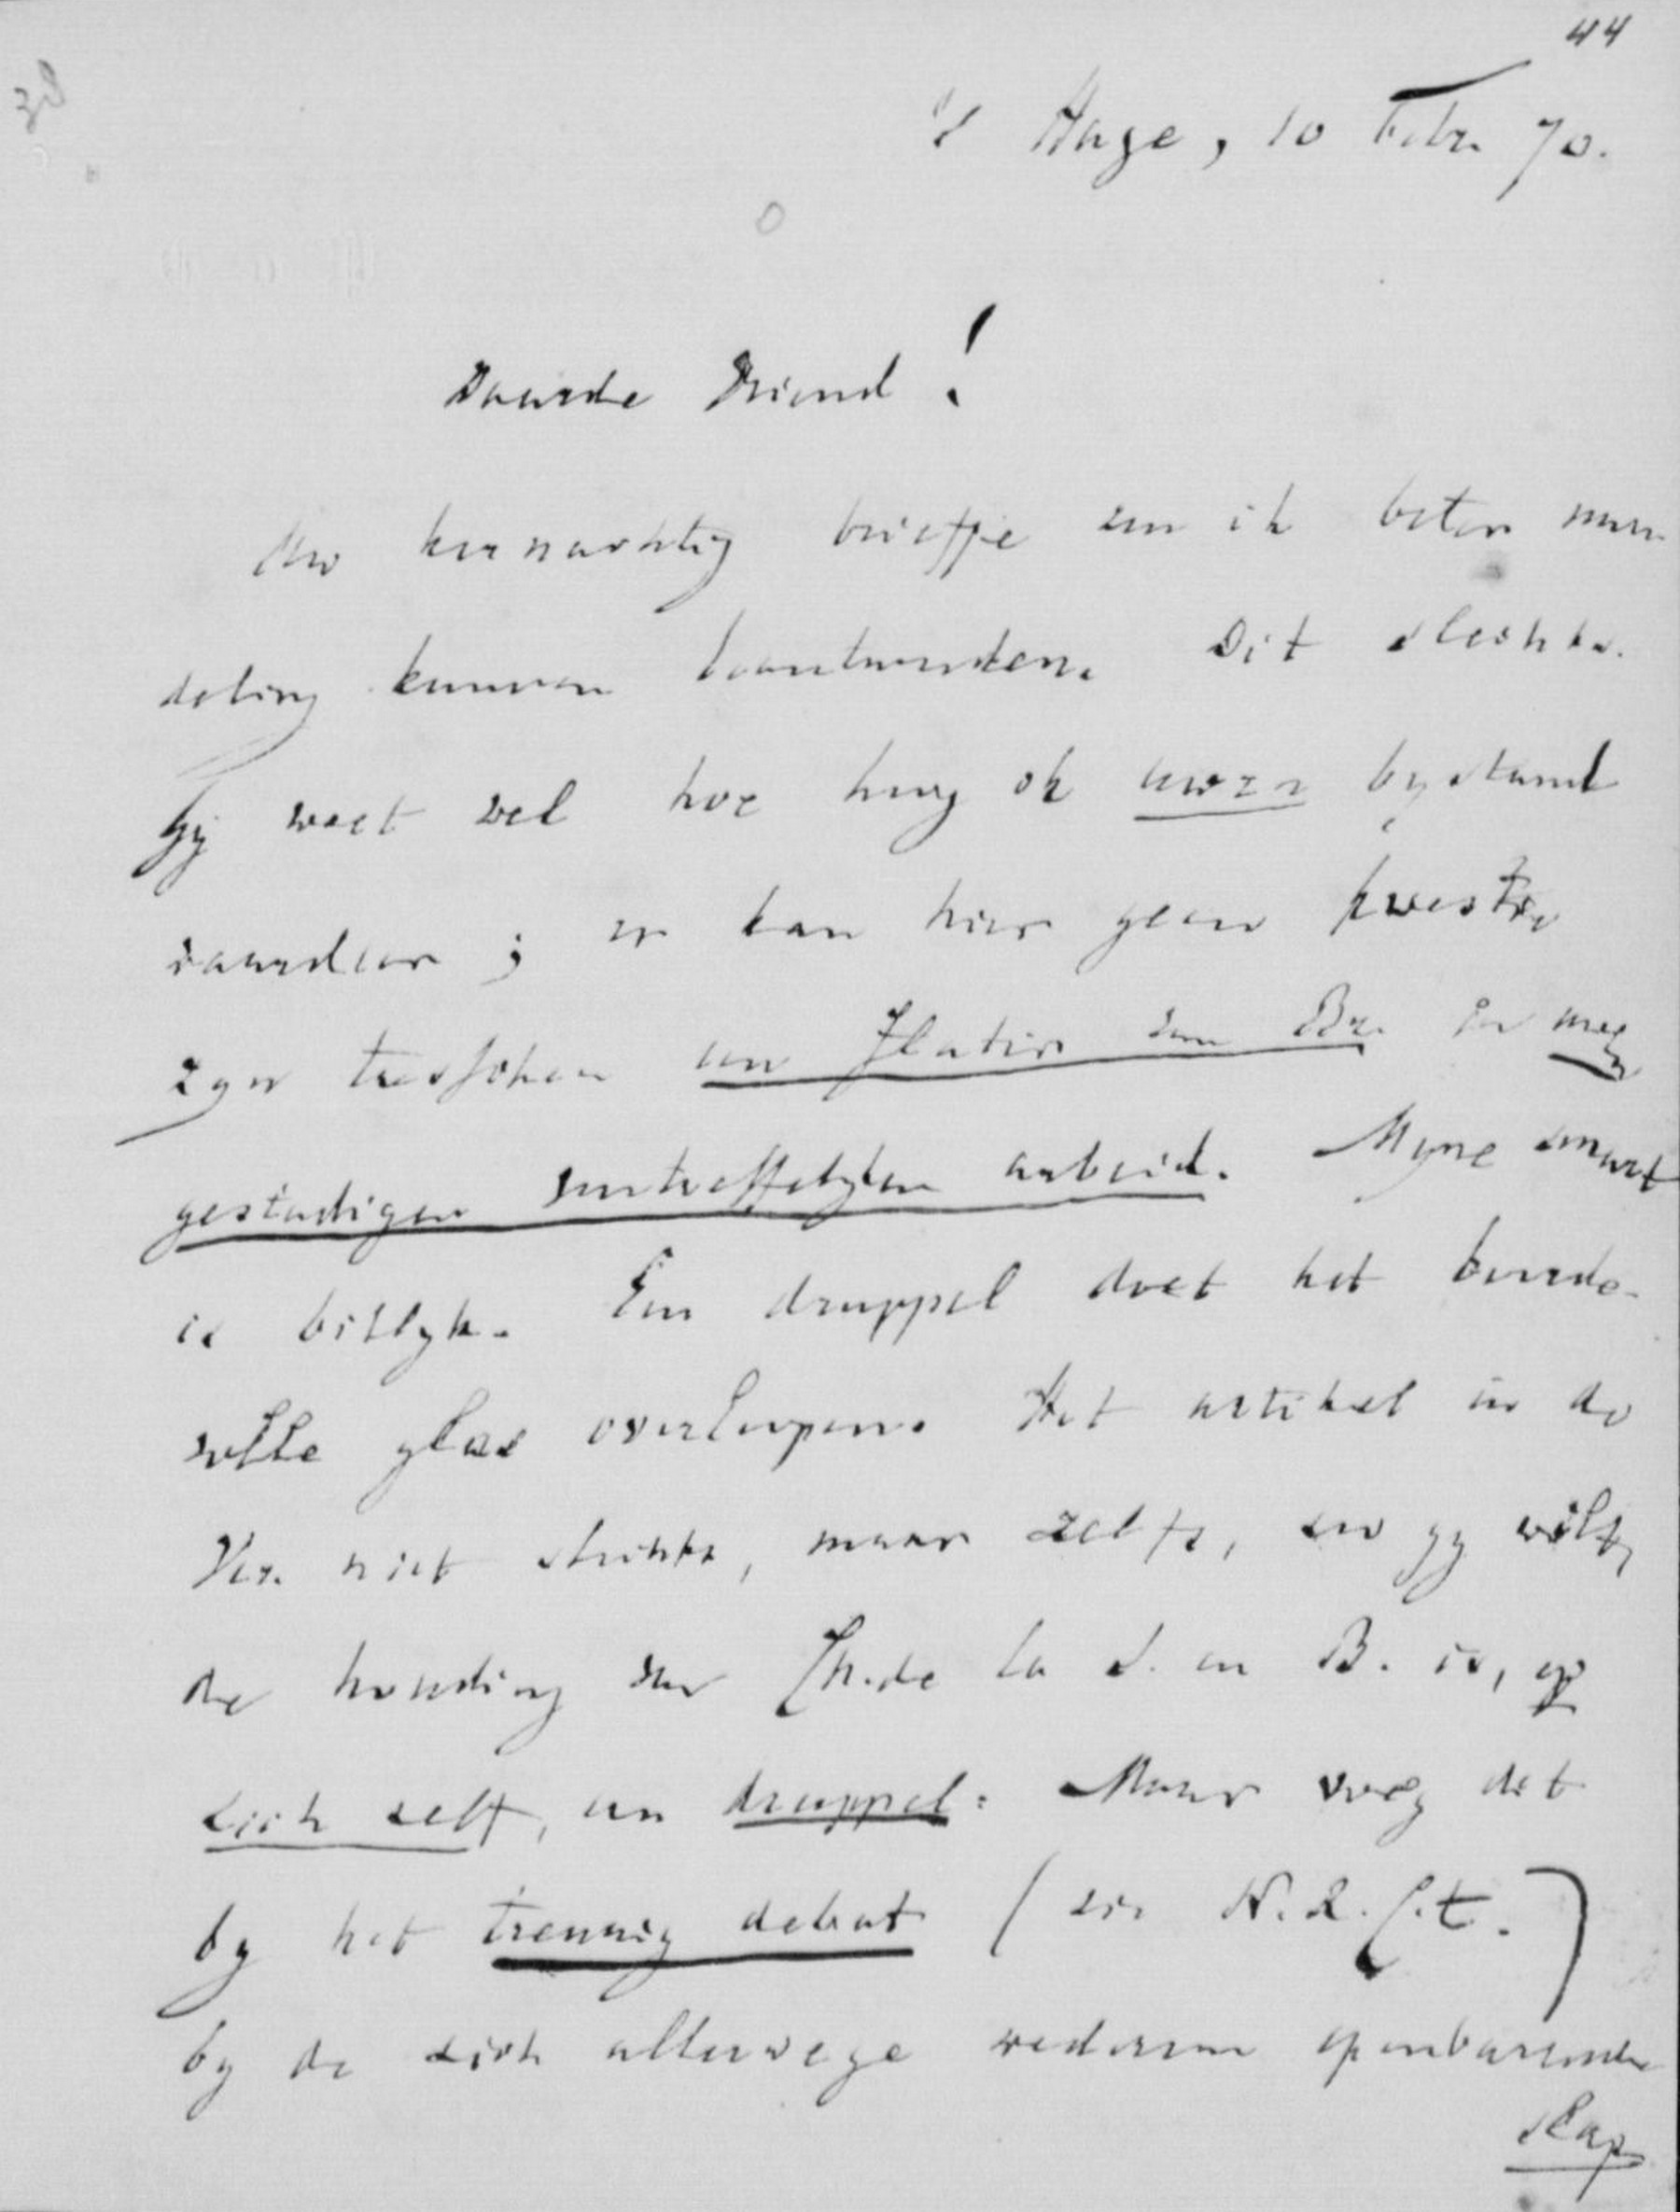 44
's Hage, 10 Febr. 70.
Waarde Vriend!
Uw kernachtig briefje zou ik beter mon-
deling kunnen beantwoorden. Dit slechts.
Gij weet wel hoe hoog ik uwen bystand
waardeer; er kan hier geen kwestie
zyn tusschen een van Br. en uw
gestadigen voortreffelyken arbeid. Myne smart
is billyk. Een druppel doet het boorde-
volle glas overloopen. Het artikel in de
Ver. niet slechts, maar zelfs, zoo gy wilt,
de houding van Ch. de la S. en B. is, op
zich zelf, een druppel. Maar voeg dit
by het treurig debat (zie N.R.Ct.)
by de zich allerwege wederom openbarende
slap